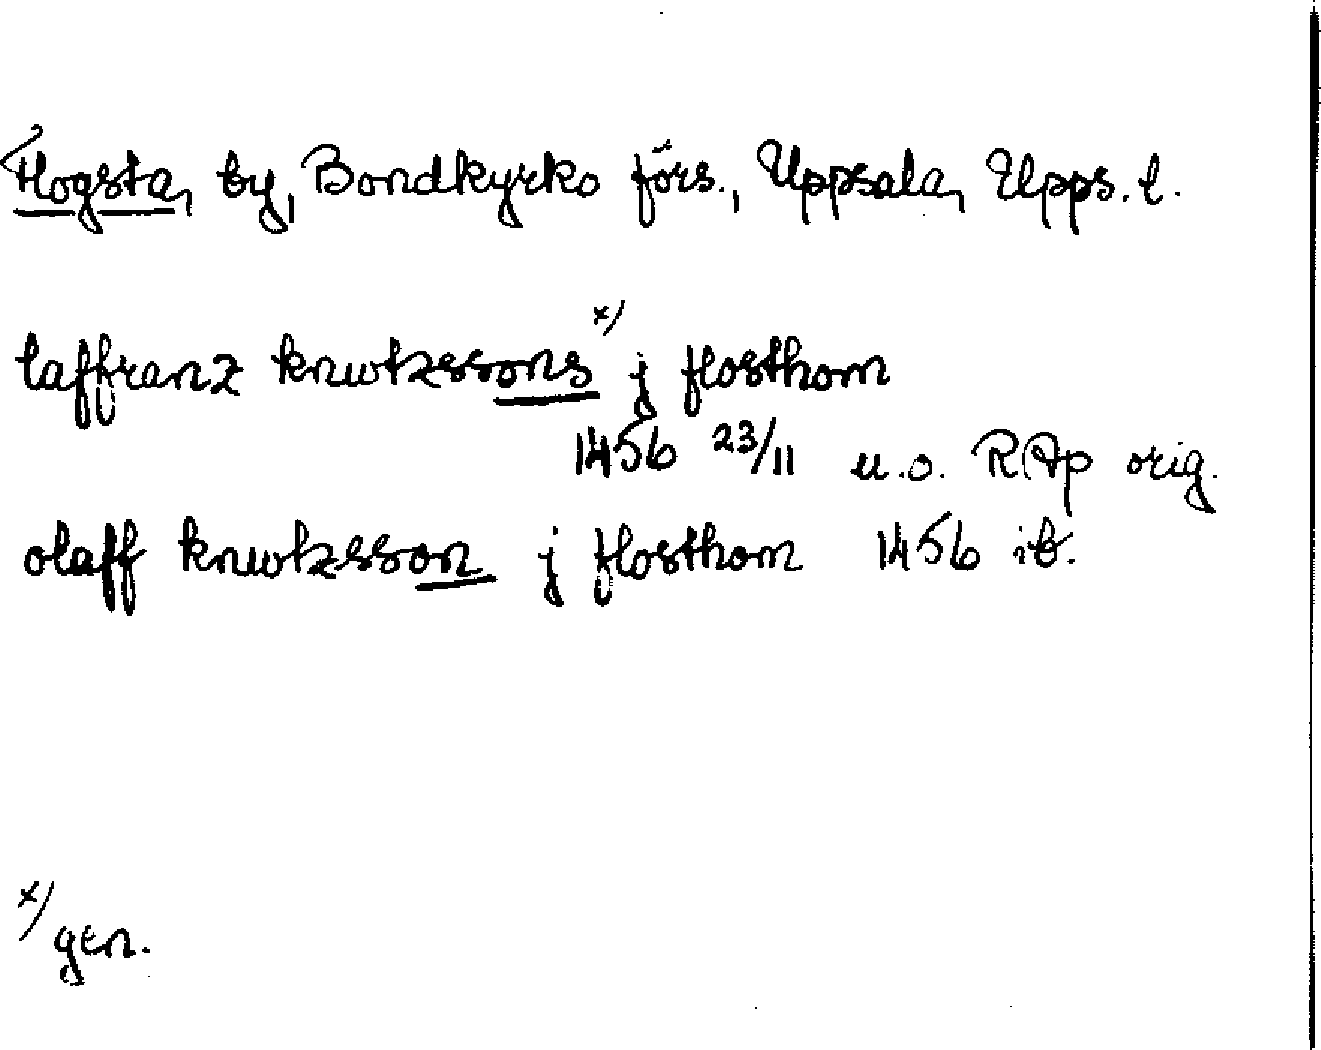 Flogsta, by, Bondkyrko förs., Uppsala, Upps. l.
laffranz knwtzssons x) j flosthom
1456 23/11 u.o. RAp orig.
olaff knwtzsson j flosthom 1456 ib.
x) gen.